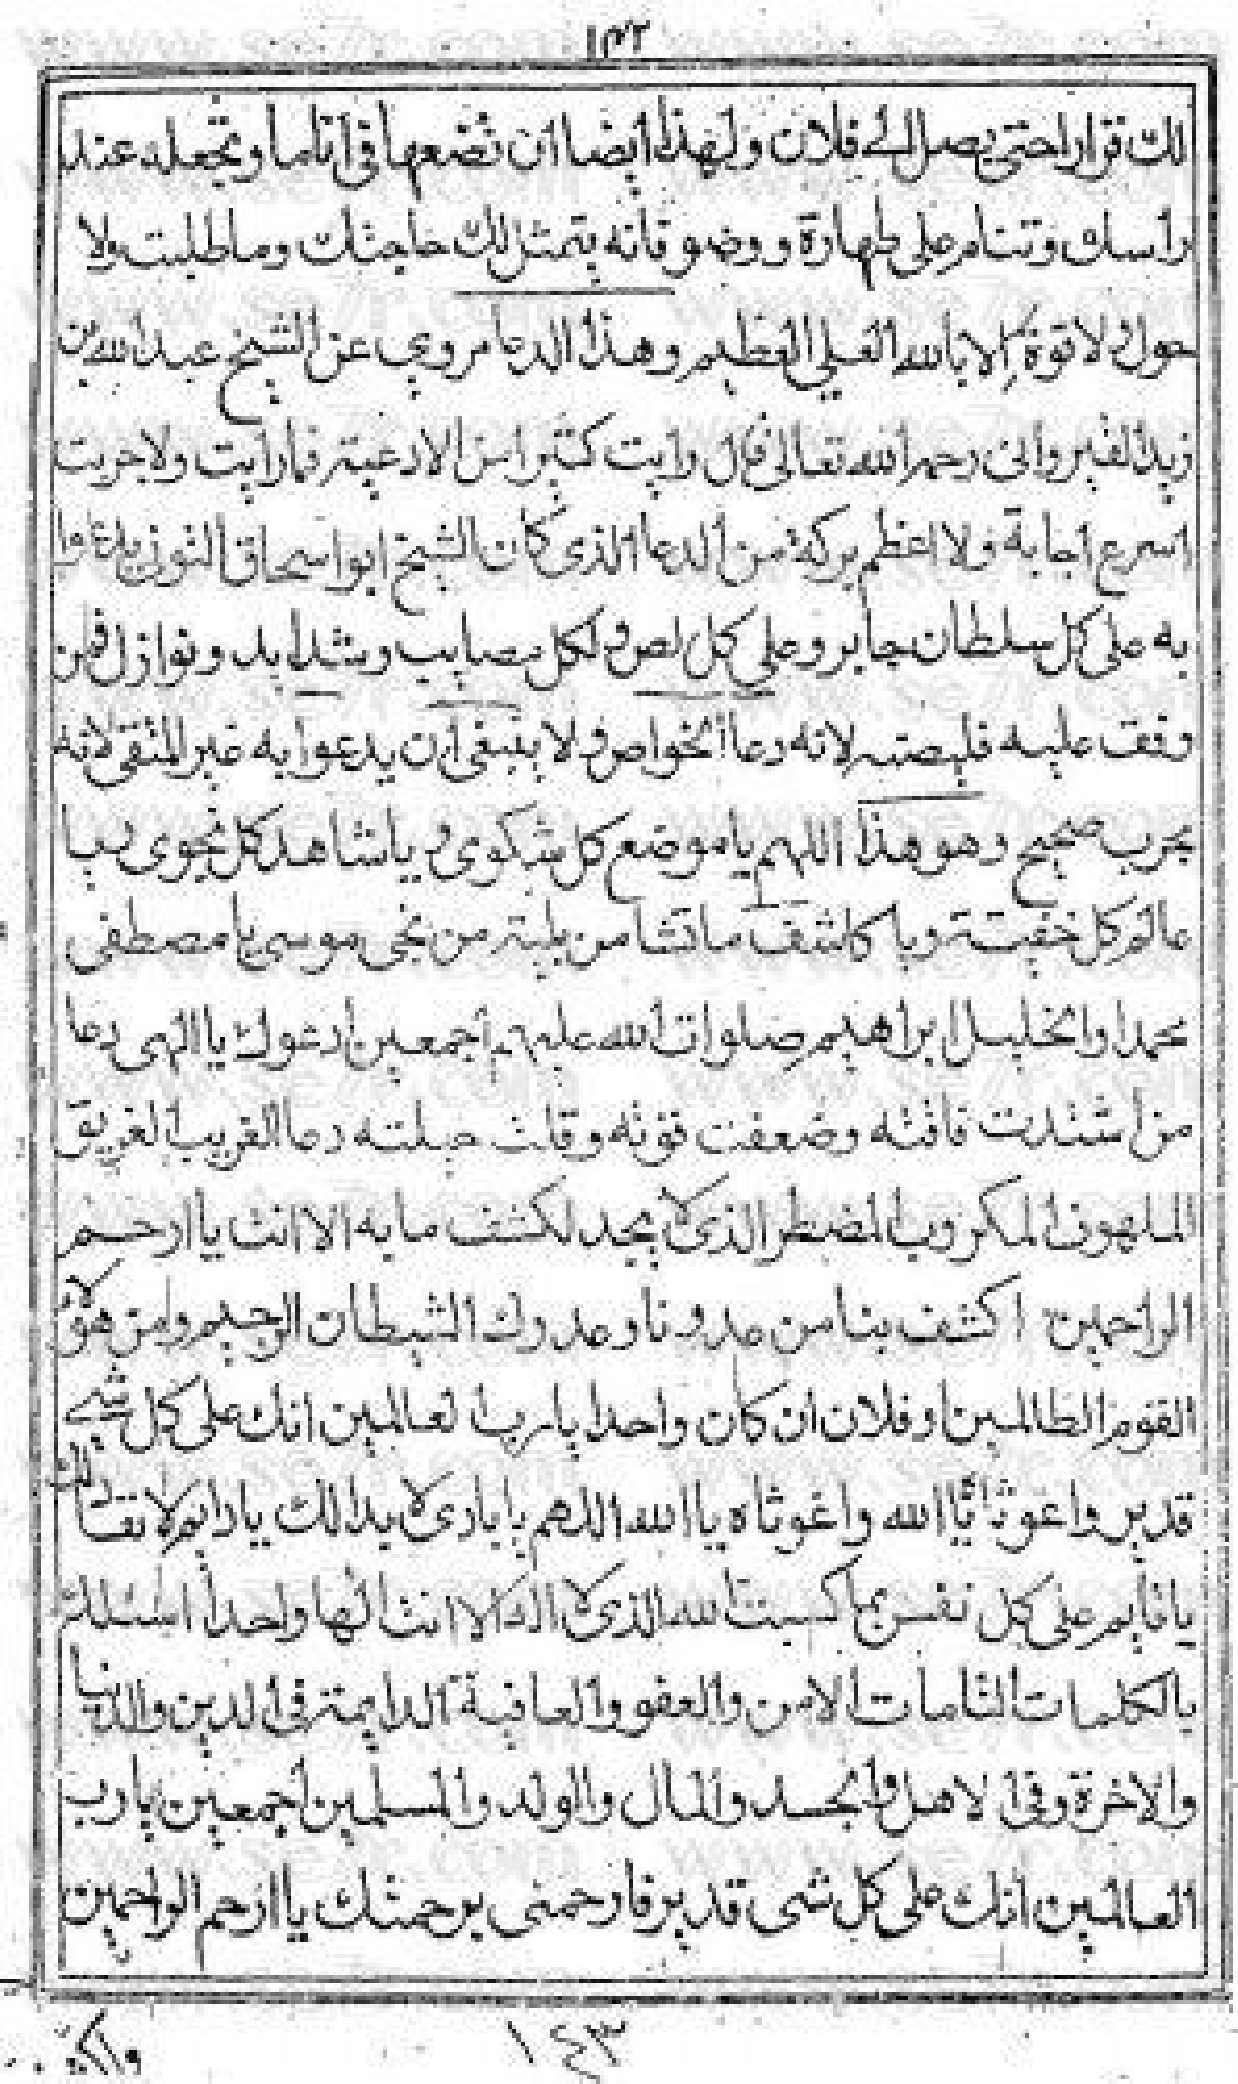 ١٤٢
لك قرار احتى يصل الى فلان ولهذا ايضا ان تضعها فى اناما وتجعله عند
راسك وتنام على طهارة ووضو فانه يتمثل لك حاجتك وما طلبت ولا
حول ولا قوة الا بالله العلي العظيم وهذا الدعا مروي عن الشيخ عبد الله بن
زيد القيروانى رحمه الله تعالى قال رايت كثيرا من الادعية فما رايت ولا جربت
اسرع اجابة ولا اعظم بركة من الدعا الذى كان الشيخ ابو اسحاق التونزى يدعوا
به على كل سلطان جاير وعلى كل لص ولكل مصايب وشدايد ونوازل فمن
وقف عليه فليصنه لانه دعا الخواص ولا ينبغى ان يدعوا به غير المتقى لانه
مجرب صحيح وهو هذا اللهم يا موضع كل شكوى ويا شاهد كل نجوى ويا
عالم كل خفيتة ويا كاشف ما تشا من بلية من نجى موسى يا مصطفى
محمدا والخليل ابراهيم صلوات الله عليهم اجمعين ادعوك يا الهى دعا
من اشتدت فاقته وضعفت قوته وقلت حيلته دعا الغريب الغريق
الملهوف المكروب المضطر الذى لا يجد لكشف ما به الا انت يا ارحم
الراحمين اكشف بنا من عدونا وعدوك الشيطان الرجيم ومن هولا
القوم الظالمين او فلان ان كان واحدا يا رب العالمين انك على كل شى
قدير واغوثاه يا الله واغوثاه يا الله اللهم يا بارى لا بدا لك يا دايم لا نفاد لك
يا قايم على كل نفس بما كسبت انت الله الذى لا اله الا انت الها واحدا اسئلك
بالكلمات التامات الامن والعفو والعافية الدايمة فى الدين والدنيا
والاخرة وفى الاهل والجسد والمال والولد والمسلمين اجمعين يا رب
العالمين انك على كل شى قدير فارحمنى برحمتك يا ارحم الراحمين
١٤٣